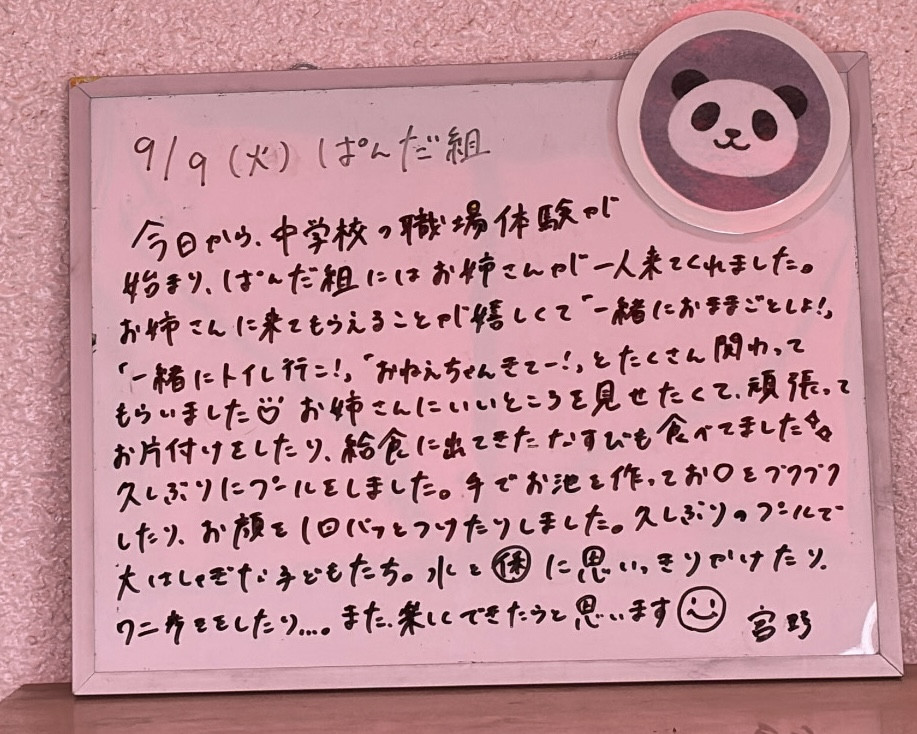 9/9(火) ぱんだ組
今日から、中学校の職場体験が
始まり、ぱんだ組にはお姉さんが一人来てくれました。
お姉さんに来てもらえることが嬉しくて「一緒におままごとしよ!」
「一緒にトイレ行こ!」「おねえちゃんきてー!」とたくさん関わって
もらいました♡ お姉さんにいいところを見せたくて、頑張って
お片付けをしたり、給食に出てきたなすびも食べてました✧
久しぶりにプールをしました。手でお池を作ってお口をブクブク
したり、お顔を1回バッとつけたりしました。久しぶりのプールで
大はしゃぎな子どもたち。水を㊡に思いっきりかけたり、
ワニ歩きをしたり...。また、楽しくできたらと思います☺ 宮野